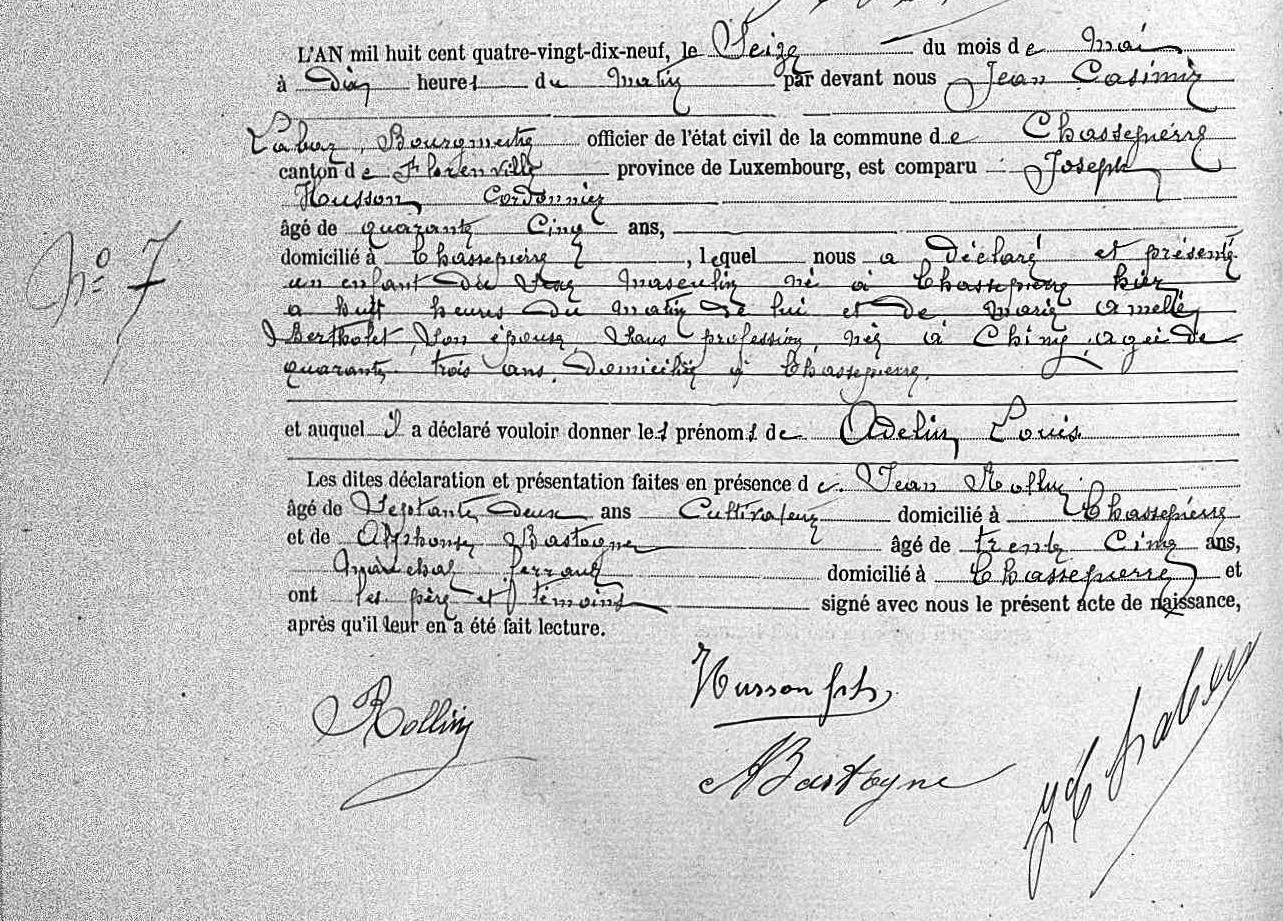 L'AN mil huit cent quatre-vingt-dix-neuf, le Seize du mois de Mai
à Dix heures du Matin par devant nous Jean Casimir
Labar, Bourgmestre officier de l'état civil de la commune de Chassepierre
canton de Florenville province de Luxembourg, est comparu Joseph
Husson, Cordonnier
âgé de quarante Cinq ans,
domicilié à Chassepierre, lequel nous a déclaré et présenté
N° 7
un enfant du Sexe masculin né à Chassepierre hier
a huit heures du matin de lui et de Marie Amelie
Bertholet, son épouse, sans profession, née à Chiny, agée de
quarante trois ans, domiciliée à Chassepierre.
et auquel il a déclaré vouloir donner les prénoms de Adelin Louis.
Les dites déclaration et présentation faites en présence de Jean Rollin
âgé de Septante Deux ans Cultivateur domicilié à Chassepierre
et de Alphonse Bastogne âgé de trente Cinq ans,
Maréchal ferrant domicilié à Chassepierre et
ont les père et témoins signé avec nous le présent acte de naissance,
après qu'il leur en a été fait lecture.
Rollin
Husson
ABastogne